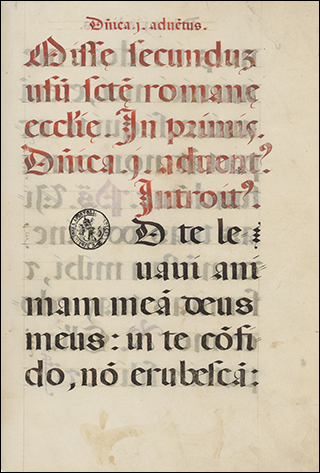 Dñica .j. aduẽtus.
Misse secunduȝ
usũ sctẽ romane
ecclie. In primis.
Dñica .j. aduent⁹.
Introit⁹.
D te le
uaui ani
mam meã deus
meus: in te cõfi
do, nõ erubescã: